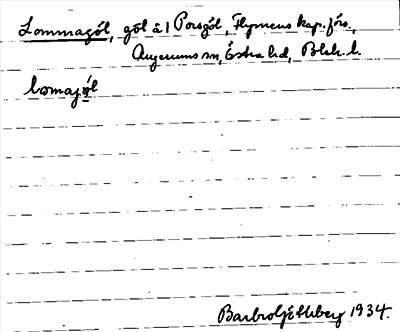 Lommagöl, göl å 1 Porsgöl, Flymens kap. förs.,
Augerums sn, Östra hd, Blek. l.
lomagö̱l
Barbro Söderberg 1934.